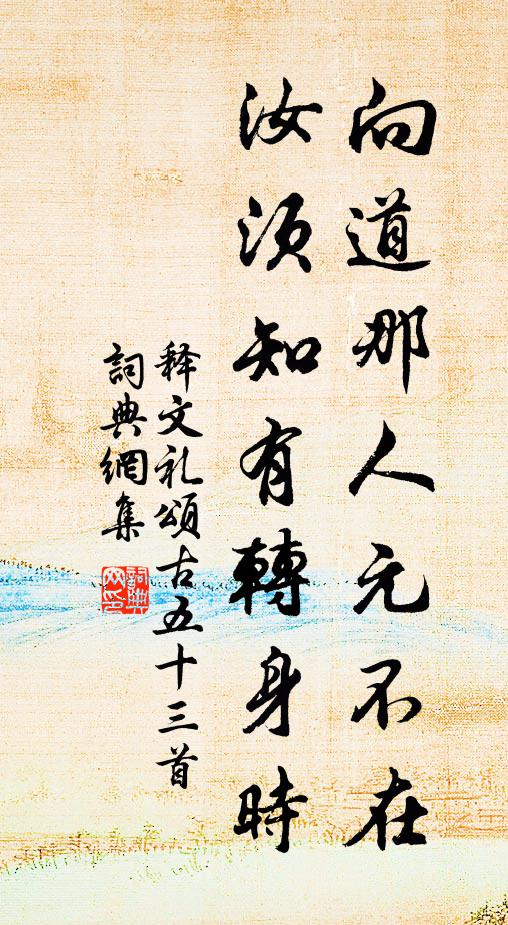 向道那人元不在
汝须知有轉身時
释文礼頌古五十三首
詞典網集
詞典网印